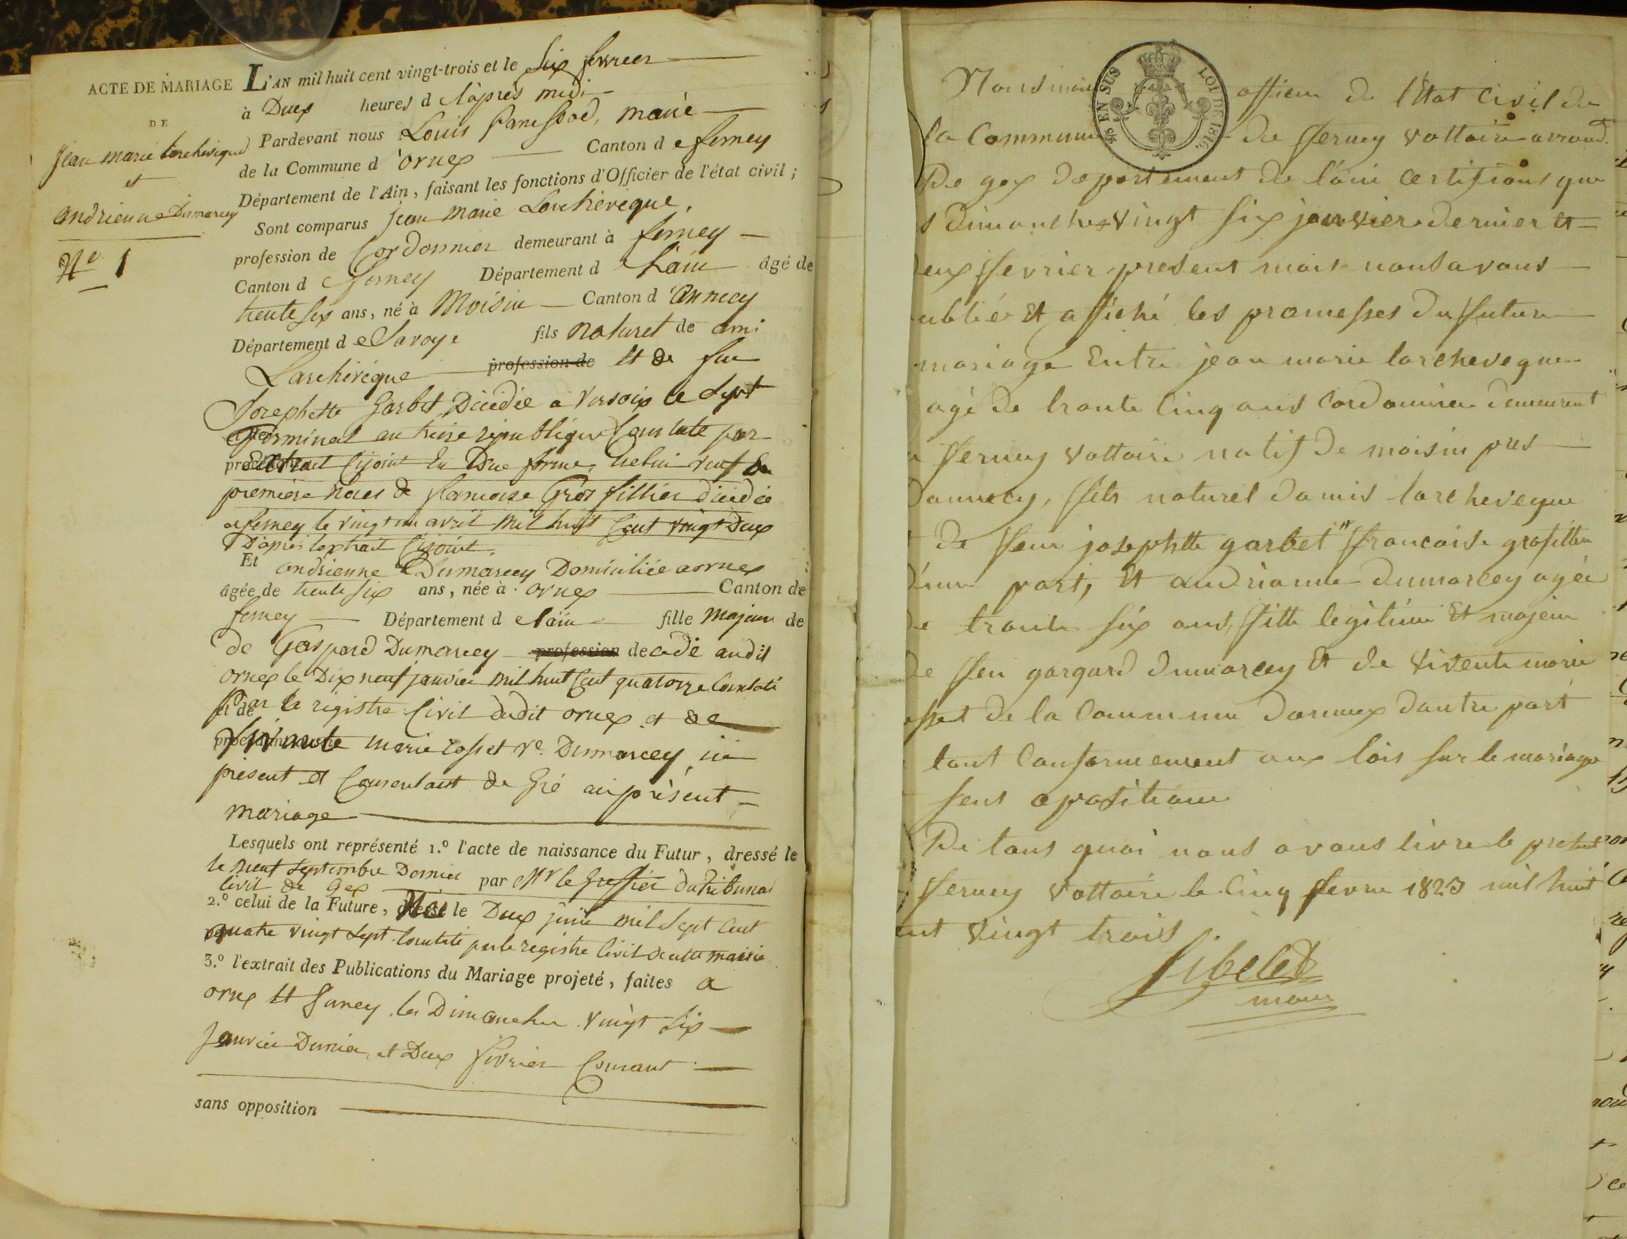 ACTE DE MARIAGE
DE
jean marie Larchevêque
et
andrienne Dumarcey
N.º 1
L'AN mil huit cent vingt-trois et le Six fevrier
à Deux heures d l'après midi
Pardevant nous Louis maire
de la Commune d 'ornex Canton d e ferney
Département de l'Ain, faisant les fonctions d'Officier de l'état civil;
Sont comparus jean Marie Larchevêque,
profession de Cordonnier demeurant à ferney
Canton d e ferney Département d e L'ain âgé de
trente six ans, né à Moisin Canton d 'annecy
Département d e Savoye fils naturel de ami
Larchevêque profession de et de feu
Josephette Garbet Décédée à Versoix le Sept
Germinal an treize république Constaté par
Extrait Cijoint En Due forme, icelui veuf En
première Noces de françoise Gros fillier décédée
a ferney le vingt un avril mil huit Cent vingt Deux
D'après l'extrait Cijoint.
Et andrienne Dumarcey Domiciliée a ornex
âgée de trente six ans, née à ornex Canton de
ferney Département d e l'ain fille majeure de
de Gaspard Dumarcey profession de cdé audit
ornex le Dix neuf janvier mil huit Cent quatorze Constaté
par le registre Civil dudit ornex et de
Vivante marie rosset Ve. Dumarcey ici
présent et Consentant de Gré au présent
mariage
Lesquels ont représenté 1.º l'acte de naissance du Futur, dressé le
le neuf Septembre Dernier par Mr le Greffier du Tribunal
Civil de Gex
2.º celui de la Future, Née le Deux juin mil Sept Cent
quatre vingt Sept Constaté par le registre Civil de cette mairie
3.º l'extrait des Publications du Mariage projeté, faites a
ornex et ferney les Dimanches vingt Six
Janvier Dernier, et Deux fevrier Courant
sans opposition
Nous maire officier de l'Etat Civil de
la Commune de ferney voltaire arrond.
De gex departement de l'ain certifions que
s Dimanches vingt six janvier dernier et
eux fevrier present mois nous avons
ublié et affiché les promesses du futur
mariage Entre jean marie larcheveque
agé de trante cinq ans cordonnier demeurant
a ferney voltaire natif de moisin pres
dannecy, fils naturel damis larcheveque
de feue josephtte garbet francoise grosfillier
d'une part, et andrianne dumarcey agée
de trante six ans, fille legitime et majeur
de feu gaspard dumarcey et de vivente marie
osset de la commune dornex dautre part
tout conformement aux lois sur le mariage
sens opositions
De tous quoi nous avons livre le present
ferney voltaire le cinq fevrier 1823 mil huit
ent vingt trois
maire
95 EN SUS
LOI DE 1816.